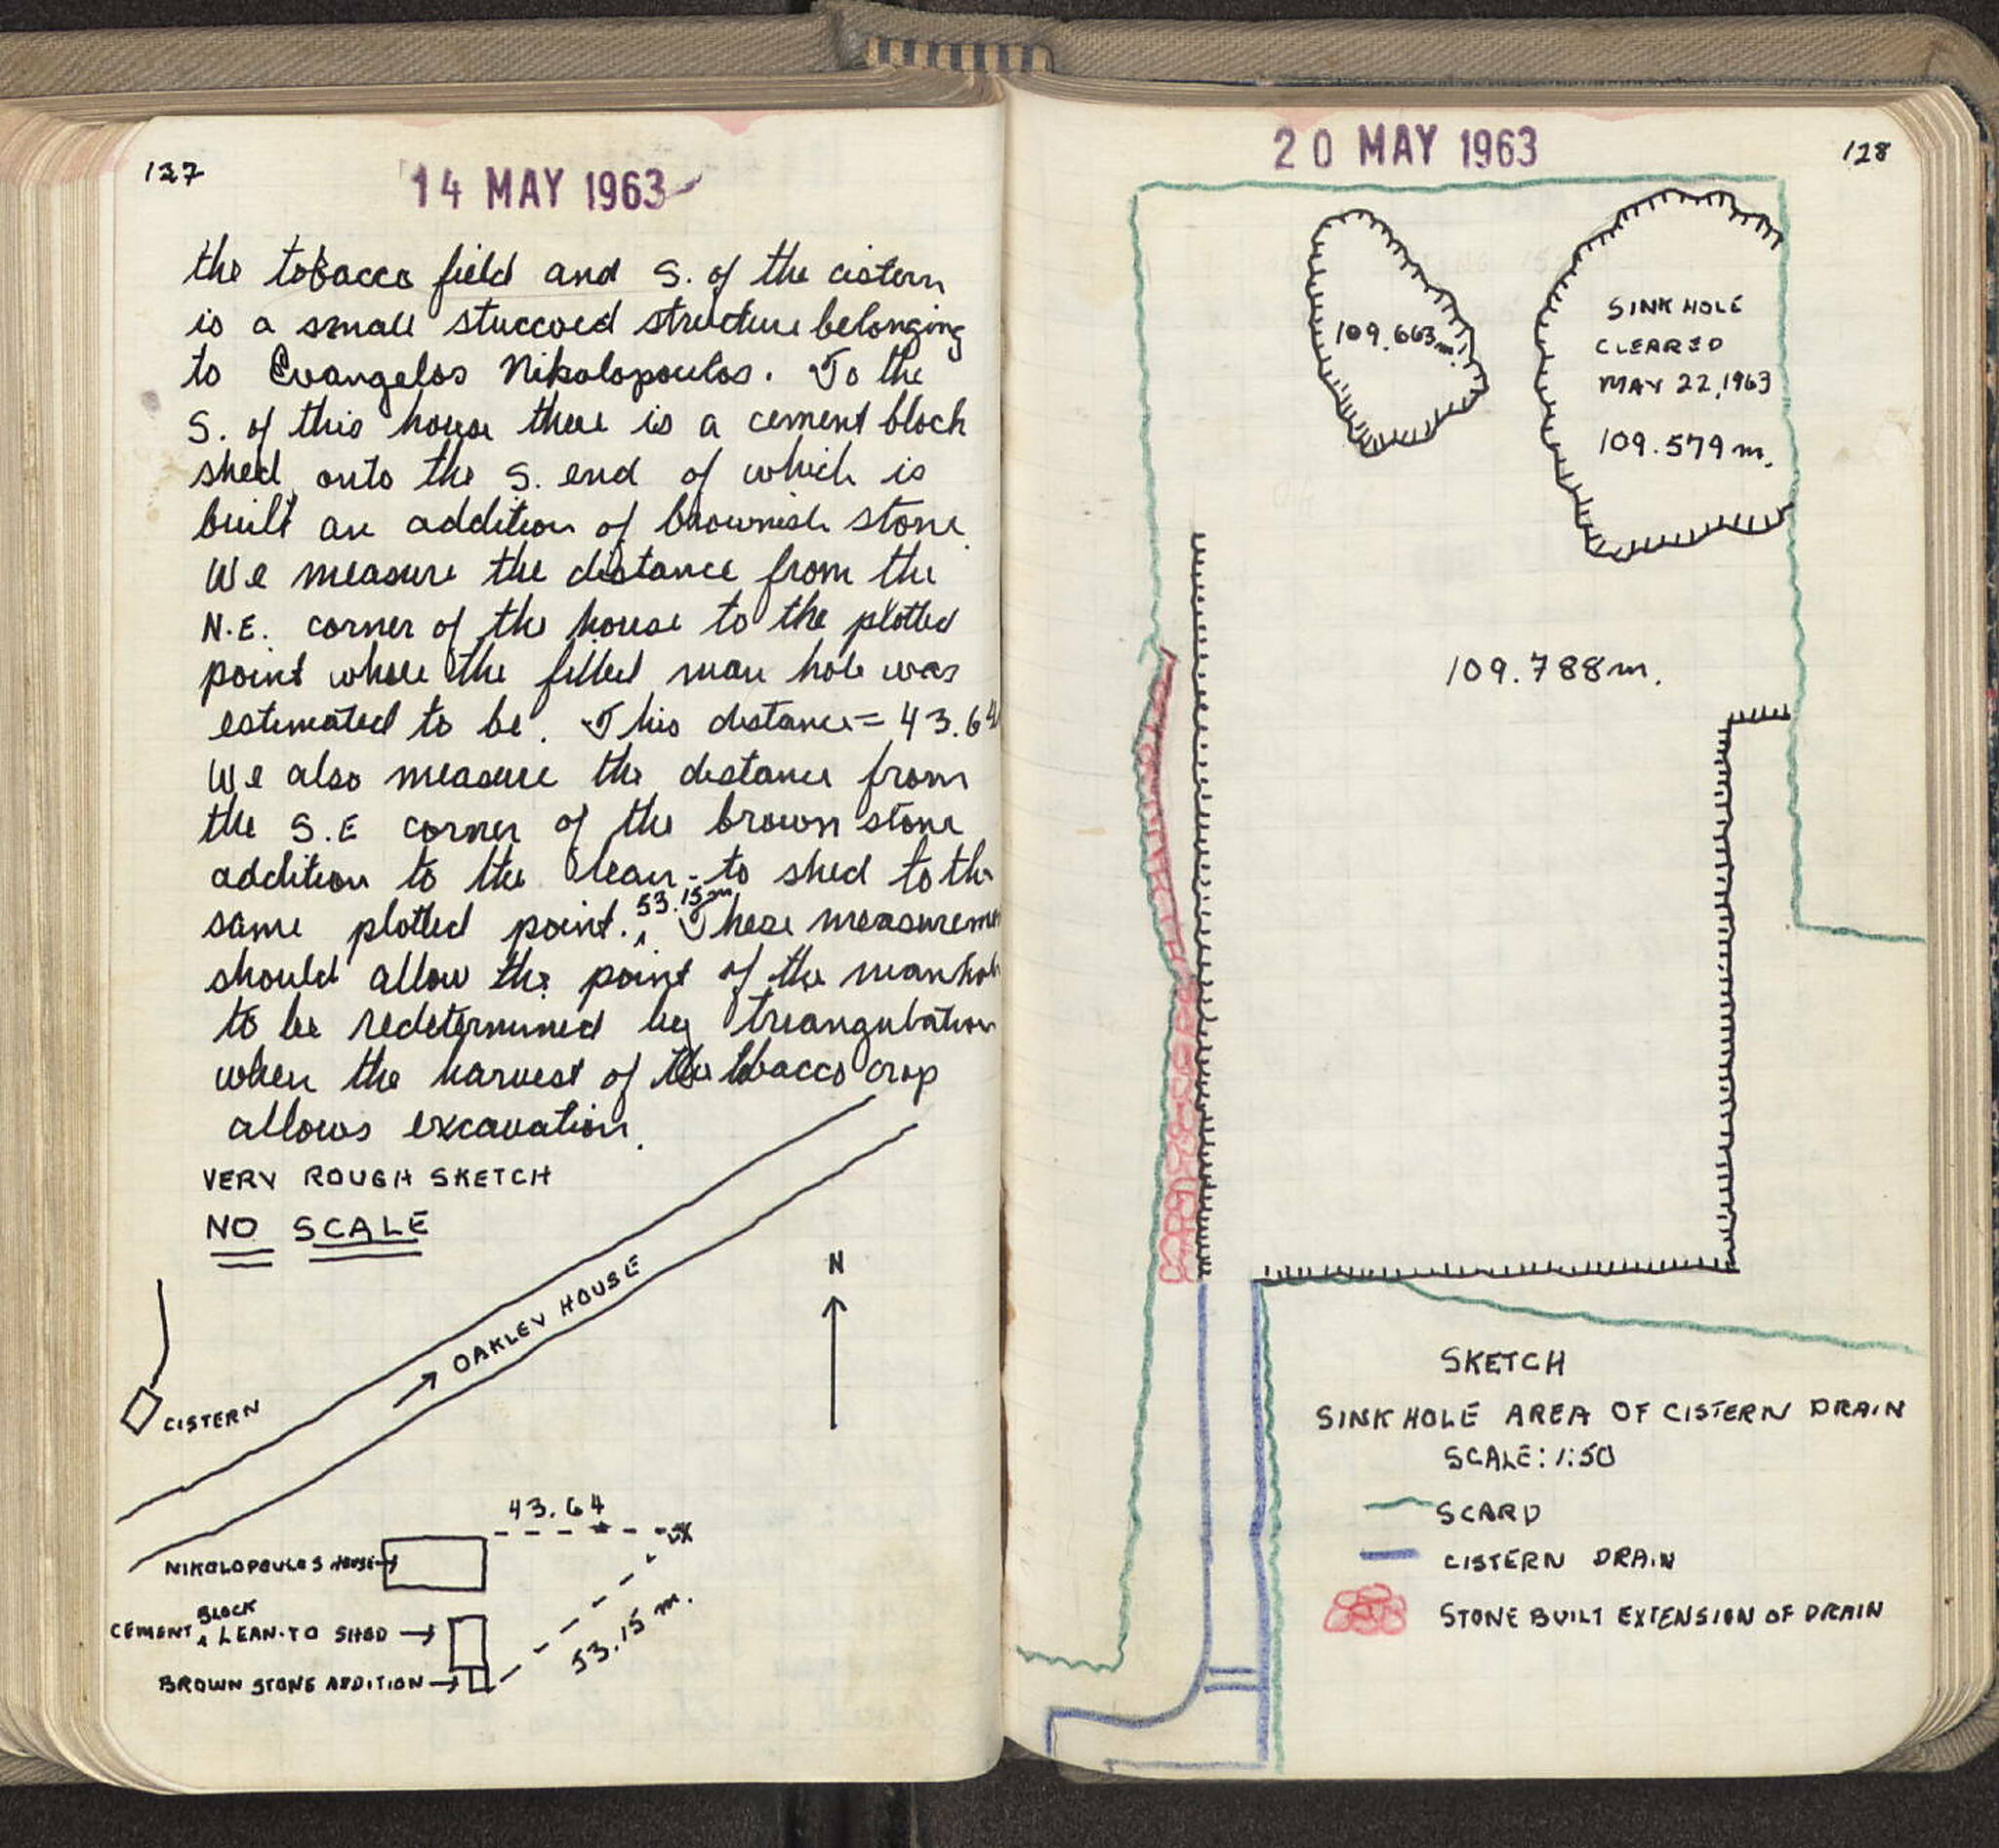 127
14 MAY 1963
the tobacco field and S. of the cistern
is a small stuccoed structure belonging
to Evangelos Nikolopoulos. To the
S. of this house there is a cement block
shed, onto the S. end of which is
built an addition of brownish stone.
We measure the distance from the
N.E. corner of the house to the plotted
point where the filled man hole was
estimated to be. This distance = 43.64
We also measure the distance from
the S.E corner of the brown stone
addition to the lean-to shed to the
53.15 m
same plotted point. ^ These measuremen
should allow the point of the manhol
to be redetermined by triangulation
when the harvest of the tobacco crop
allows excavation.
VERY ROUGH SKETCH
NO SCALE
N
OAKLEY HOUSE
CISTERN
43.64
X
NIKOLOPOULOS HOUSE
BLOCK
CEMENT ^ LEAN-TO SHED
53.15 m.
BROWN STONE ADDITION
20 MAY 1963
128
109.663 m.
SINK HOLE
CLEARED
MAY 22, 1963
109.579 m.
109.788 m.
SKETCH
SINK HOLE AREA OF CISTERN DRAIN
SCALE: 1:50
SCARP
CISTERN DRAIN
STONE BUILT EXTENSION OF DRAIN